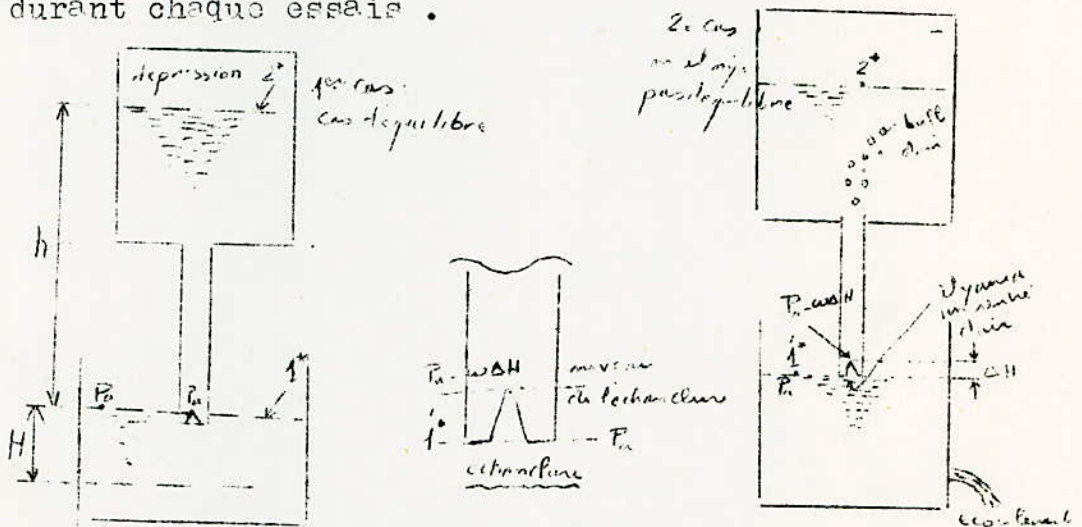 durant chaque essais .
depression 2*
1er cas
cas d'equilibre
h
H
Pa
Pa
1*
Pa - ωΔH
niveau
de l'échanclure
1*
Pa
echanclure
2e cas
pas d'equilibre
2*
bull
d'air
Pa - ωΔH
d'air
1*
Pa
ΔH